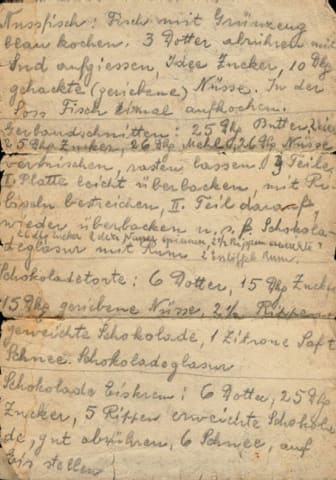 Nussfisch: Fisch mit Grünzeug
blau kochen. 3 Dotter abrühren mit
Sud aufgiessen, Zucker, 10 Dkg
gehackte (geriebene) Nüsse. In der
Soss Fisch einmal aufkochen.
Gerbaudschnitten: 25 Dkg Butter, 2 Eier
25 Dkg Zucker, 26 Dkg Mehl, 26 Dkg Nüsse
rasten lassen. 3 Teile,
I. Platte leicht überbacken, mit Ri
biseln bestreichen, II. Teil darauf,
wieder überbacken u. s. f. Schokola
20 dkg Zucker 2 2½ Rippen
deglasur mit Rum. 2 esslöffel Rum.
Schokoladetorte: 6 Dotter, 15 Dkg Zucker
15 Dkg geriebene Nüsse, 2½ Rippen
geweichte Schokolade, 1 Zitrone Saft
Schnee. Schokoladeglasur
Schokolade Eiskrem: 6 Dotter, 25 Dkg
Zucker, 5 Rippen erweichte Schokola
de, gut abrühren, 6 Schnee, auf
Eis stellen